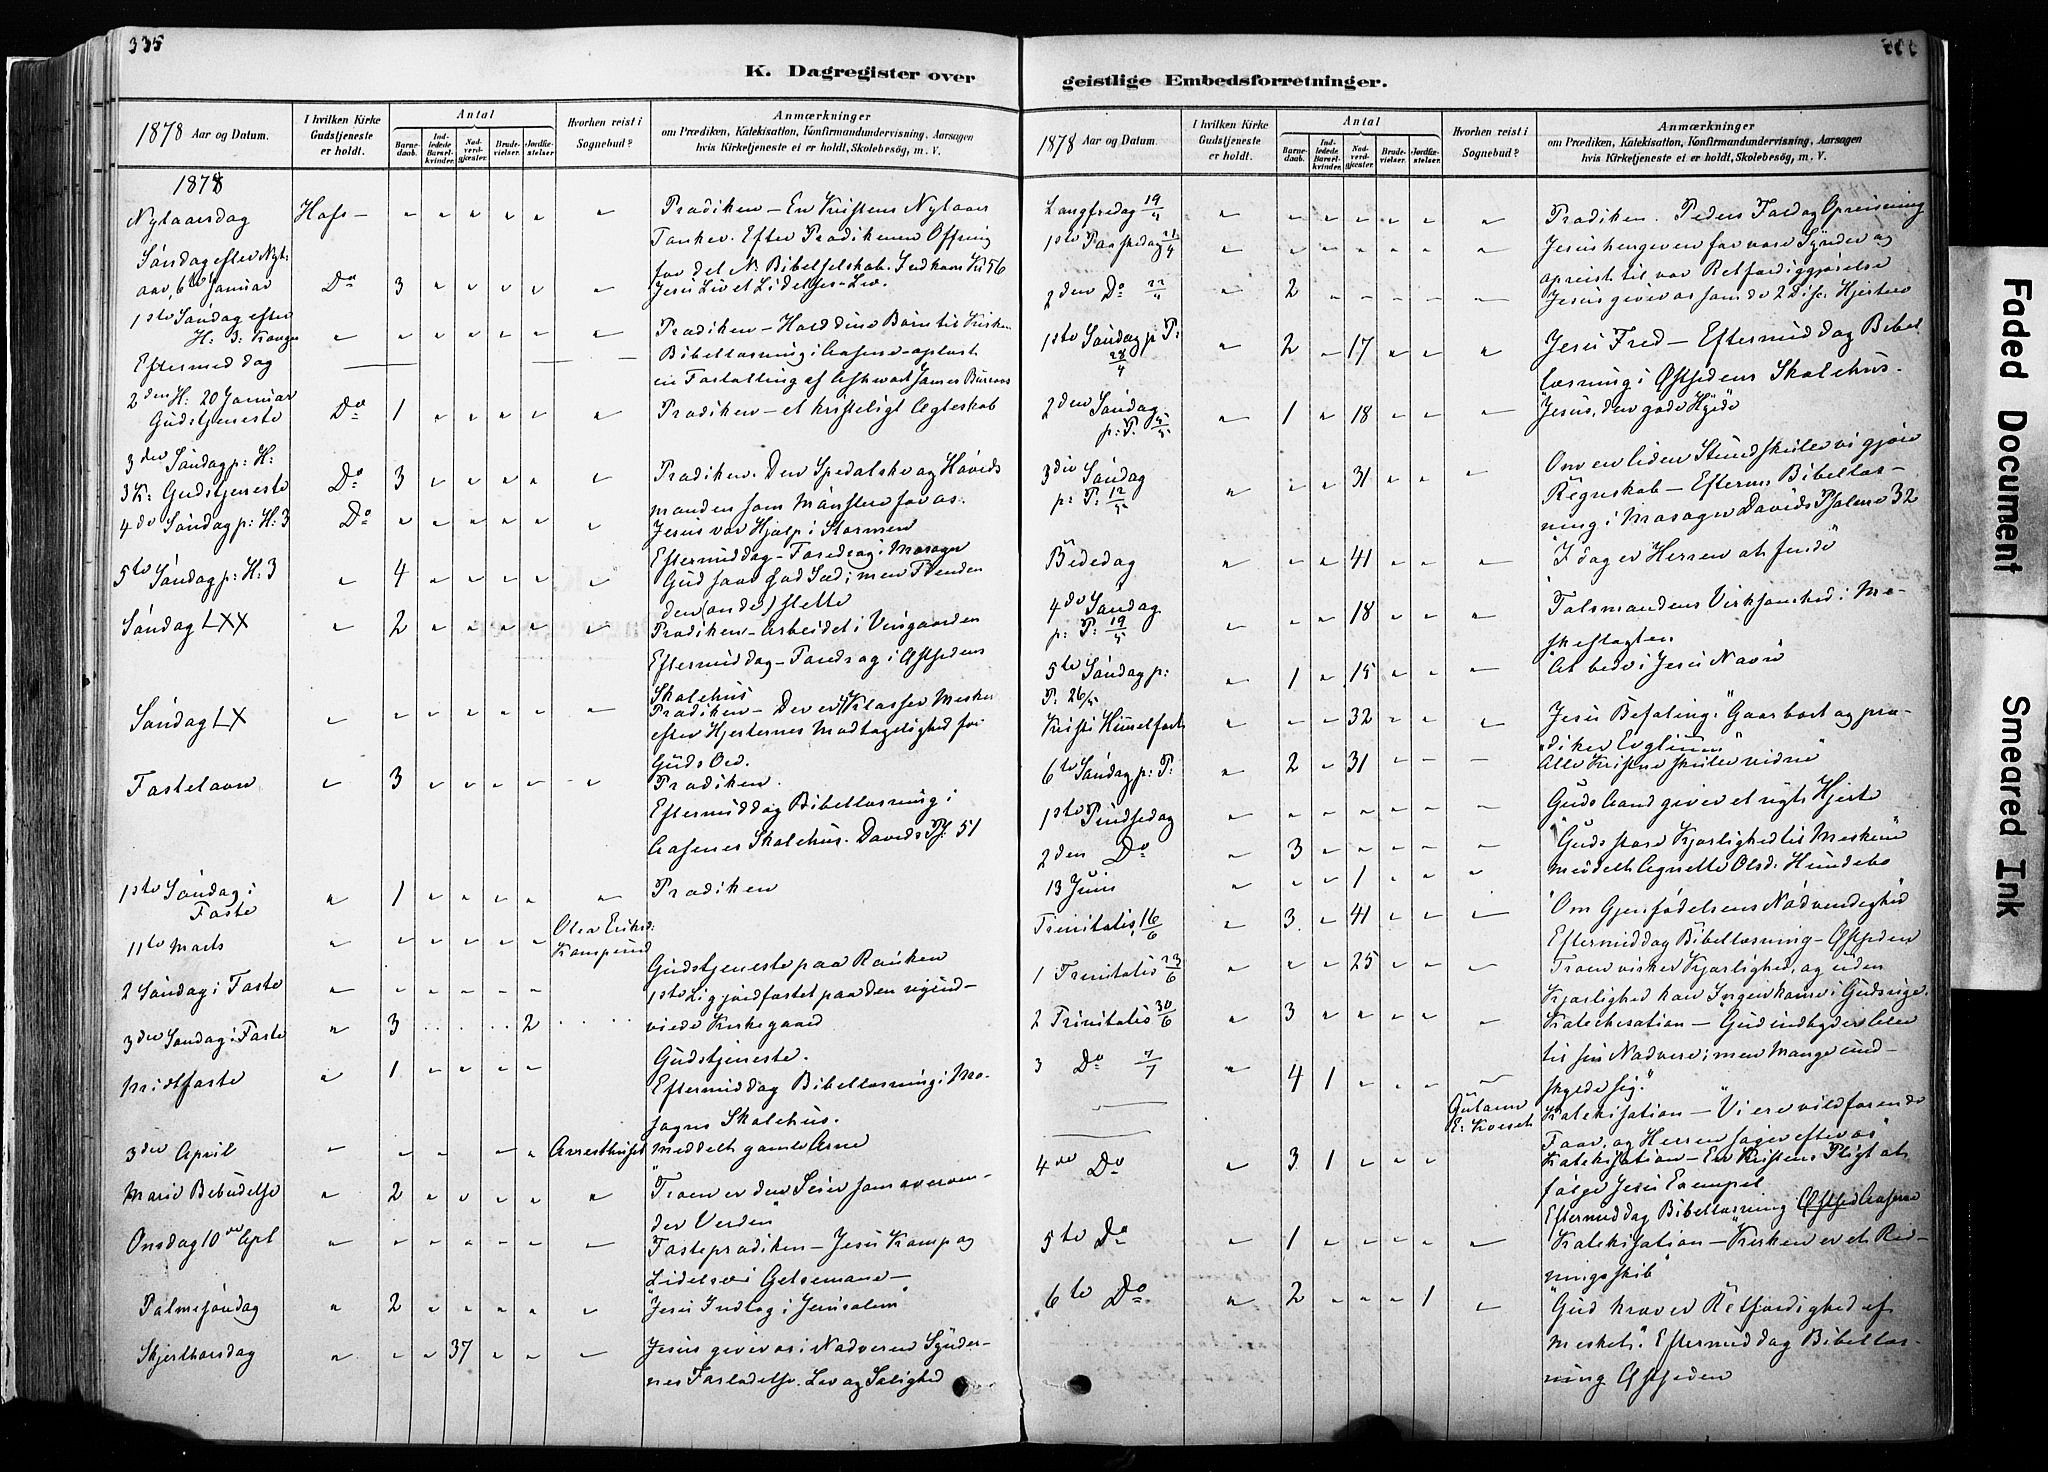 335
K. Dagregister over
Antal
1878 Aar og Datum.
I hvilken Kirke Gudstjeneste er holdt.
Barnedaab.
Indledede Barselkvinder.
Nadverdgjester.
Brudevielser.
Jordfæstelser.
Hvorhen reist i Sognebud?
Anmærkninger
om Prædiken, Katekisation, Konfirmandundervisning, Aarsagen
hvis Kirketjeneste et er holdt, Skolebesøg, m. V.
1878
Nytaarsdag Hafs - " " " " " " Prædiken - En Kristens Nytaars
Tanker. Efter Prædikenen Offring
Søndag efter Nyt-
for det N. Bibelselskab. Indkom Kr 56
aar, 6te Januar Do 3 " " " " " Jesu Liv et Lidelses-Liv.
1ste Søndag efter
H. 3. Konger " " " " " " " Prædiken - Hold dine Børn til Kirken
Eftermiddag Bibellæsning i Aasene - oplæst
en Fortælling af
2den H: 20 Januar
Gudstjeneste Do 1 " " " " " Prædiken - et kristeligt Ægteskab
3die Søndag p: H:
3 K: Gudstjeneste Do 3 " " " " " Prædiken. Den Spedalske og Høveds
manden som Mønstre for os.
4de Søndag p: H: 3 Do " " " " " " Jesus vor Hjælp i Stormen
Eftermiddag - Foredrag i Mosager
5te Søndag p: H: 3 " 4 " " " " " Gud saar God Sæd; men Fienden
den (onde) slette
Søndag LXX " 2 " " " " " Prædiken - Arbeidet i Vingaarden
Eftermiddag - Foredrag i Østsidens
Skolehus
Søndag LX " " " " " " " Prædiken - Der er 4 Klasser Mesker
efter Hjerternes Modtagelighed for
Guds Ord.
Fastelavn " 3 " " " " " Prædiken.
Eftermiddag Bibellæsning i
Aasenes Skolehus. Davids Ps. 51
1ste Søndag i
Faste " 1 " " " " " Prædiken
11te Marts " " " " " " Olea Eriks:
2 Søndag i Faste " " " " " " Gudstjeneste paa
1ste Lig jordfæstet paa den nyind-
3die Søndag i Faste " 3 2 viede Kirkegaard
Gudstjeneste.
Midfaste " 1 " " " " Eftermiddag Bibellæsning i Mo-
sagers Skolehus.
3die April " " " " " " Arresthuset meddelt gamle Arne
Mariæ Bebudelse " 2 " " " " " "Troen er den Seier som overvin-
der Verden"
Onsdag 10de Apl " " " " " " " Fasteprædiken - Jesu Kamp og
Lidelse i Getsemane -
Palmesøndag " 2 " " " " " "Jesu Indtog i Jerusalem"
Skjærthorsdag " " " 37 " " " Jesus giver os i Nadveren Synder-
nes Forladelse, Liv og Salighed
geistlige Embedsforretninger.
Antal
1878 Aar og Datum
I hvilken Kirke Gudstjeneste er holdt.
Barnedaab.
Indledede Barselkvinder.
Nadverdgjester.
Brudevielser.
Jordfæstelser.
Hvorhen reist i Sognebud?
Anmærkninger
om Prædiken, Katekisation, Konfirmandundervisning, Aarsagen
hvis Kirketjeneste et er holdt, Skolebesøg, m. V.
Langfredag 19/4 " " " " " " " Prædiken. Peders Fald og Opreisning
1ste Paaskedag 21/4 " " " " " " " Jesus hengiven for vore Synder og
opreist til vor Retfærdiggjørelse
2den Do 22/4 " 2 " " " " " Jesus giver os som de 2 Disc. Hjerter
1ste Søndag p: P: 28/4 " 2 " 17 " " " Jesu Fred - Eftermiddag Bibel
læsning i Østsidens Skolehus.
2den Søndag p: P. 5/5 " 1 " 18 " " " "Jesus, den gode Hyrde
3die Søndag p: P: 12/5 " " " 31 " " " Om en liden Stund skulle vi gjøre
Regnskab - Efterm. Bibellæs-
ning i Mosager Davids Psalme 32
Bededag " " " 41 " " " "I dag er Herren at finde"
4de Søndag p: P: 19/5 " " " 18 " " " Talsmandens Virksomhed i Me-
skeslægten
5te Søndag p: P. 26/5 " 1 " 15 " " " "At bede i Jesu Navn"
Kristi Himelfart " " " 32 " " " Jesu Befaling: "Gaar bort og præ-
diker Evglium"
6te Søndag p: P: " 2 " 31 " " " "Alle Kristne skulle vidne"
1ste Pindsedag " " " " " " " Guds Aand giver et nyt Hjerte
2den Do " 3 " " " " " "Guds store Kjærlighed til Meskene"
13 Juni " " " 1 " " " meddelt Agnette Olsd: Hundebo
Trinitatis, 16/6 " 3 " 41 " " " "Om Gjenfødelsens Nødvendighed
Eftermiddag Bibellæsning - Østsiden
1 Trinitatis 23/6 " " " 25 " " " Troen virker Kjærlighed, og uden
Kjærlighed kan Ingen komme i Guds rige.
2 Trinitatis 30/6 " 3 " " " " " Katekisation - "Gud indbyder Alle
til sin Nadvere; men Mange und-
3 Do 7/7 " 4 1 " " " " skylde sig."
Katekisation - "Vi ere vildfarende
Faar, og Herren søger efter os"
4de Do " 3 1 " " " Katekisation - En Kristens Pligt at
følge Jesu Exempel
Eftermiddag Bibellæsning Østsid Aasene
5te Do " 1 " " " " " Katekisation - "Kirken er et Red-
ningsskib"
6te Do. " 2 " " " 1 " "Gud kræver Retfærdighed af
Mesket". Eftermiddag Bibellæs-
ning Østsiden
Faded Document
Smeared Ink